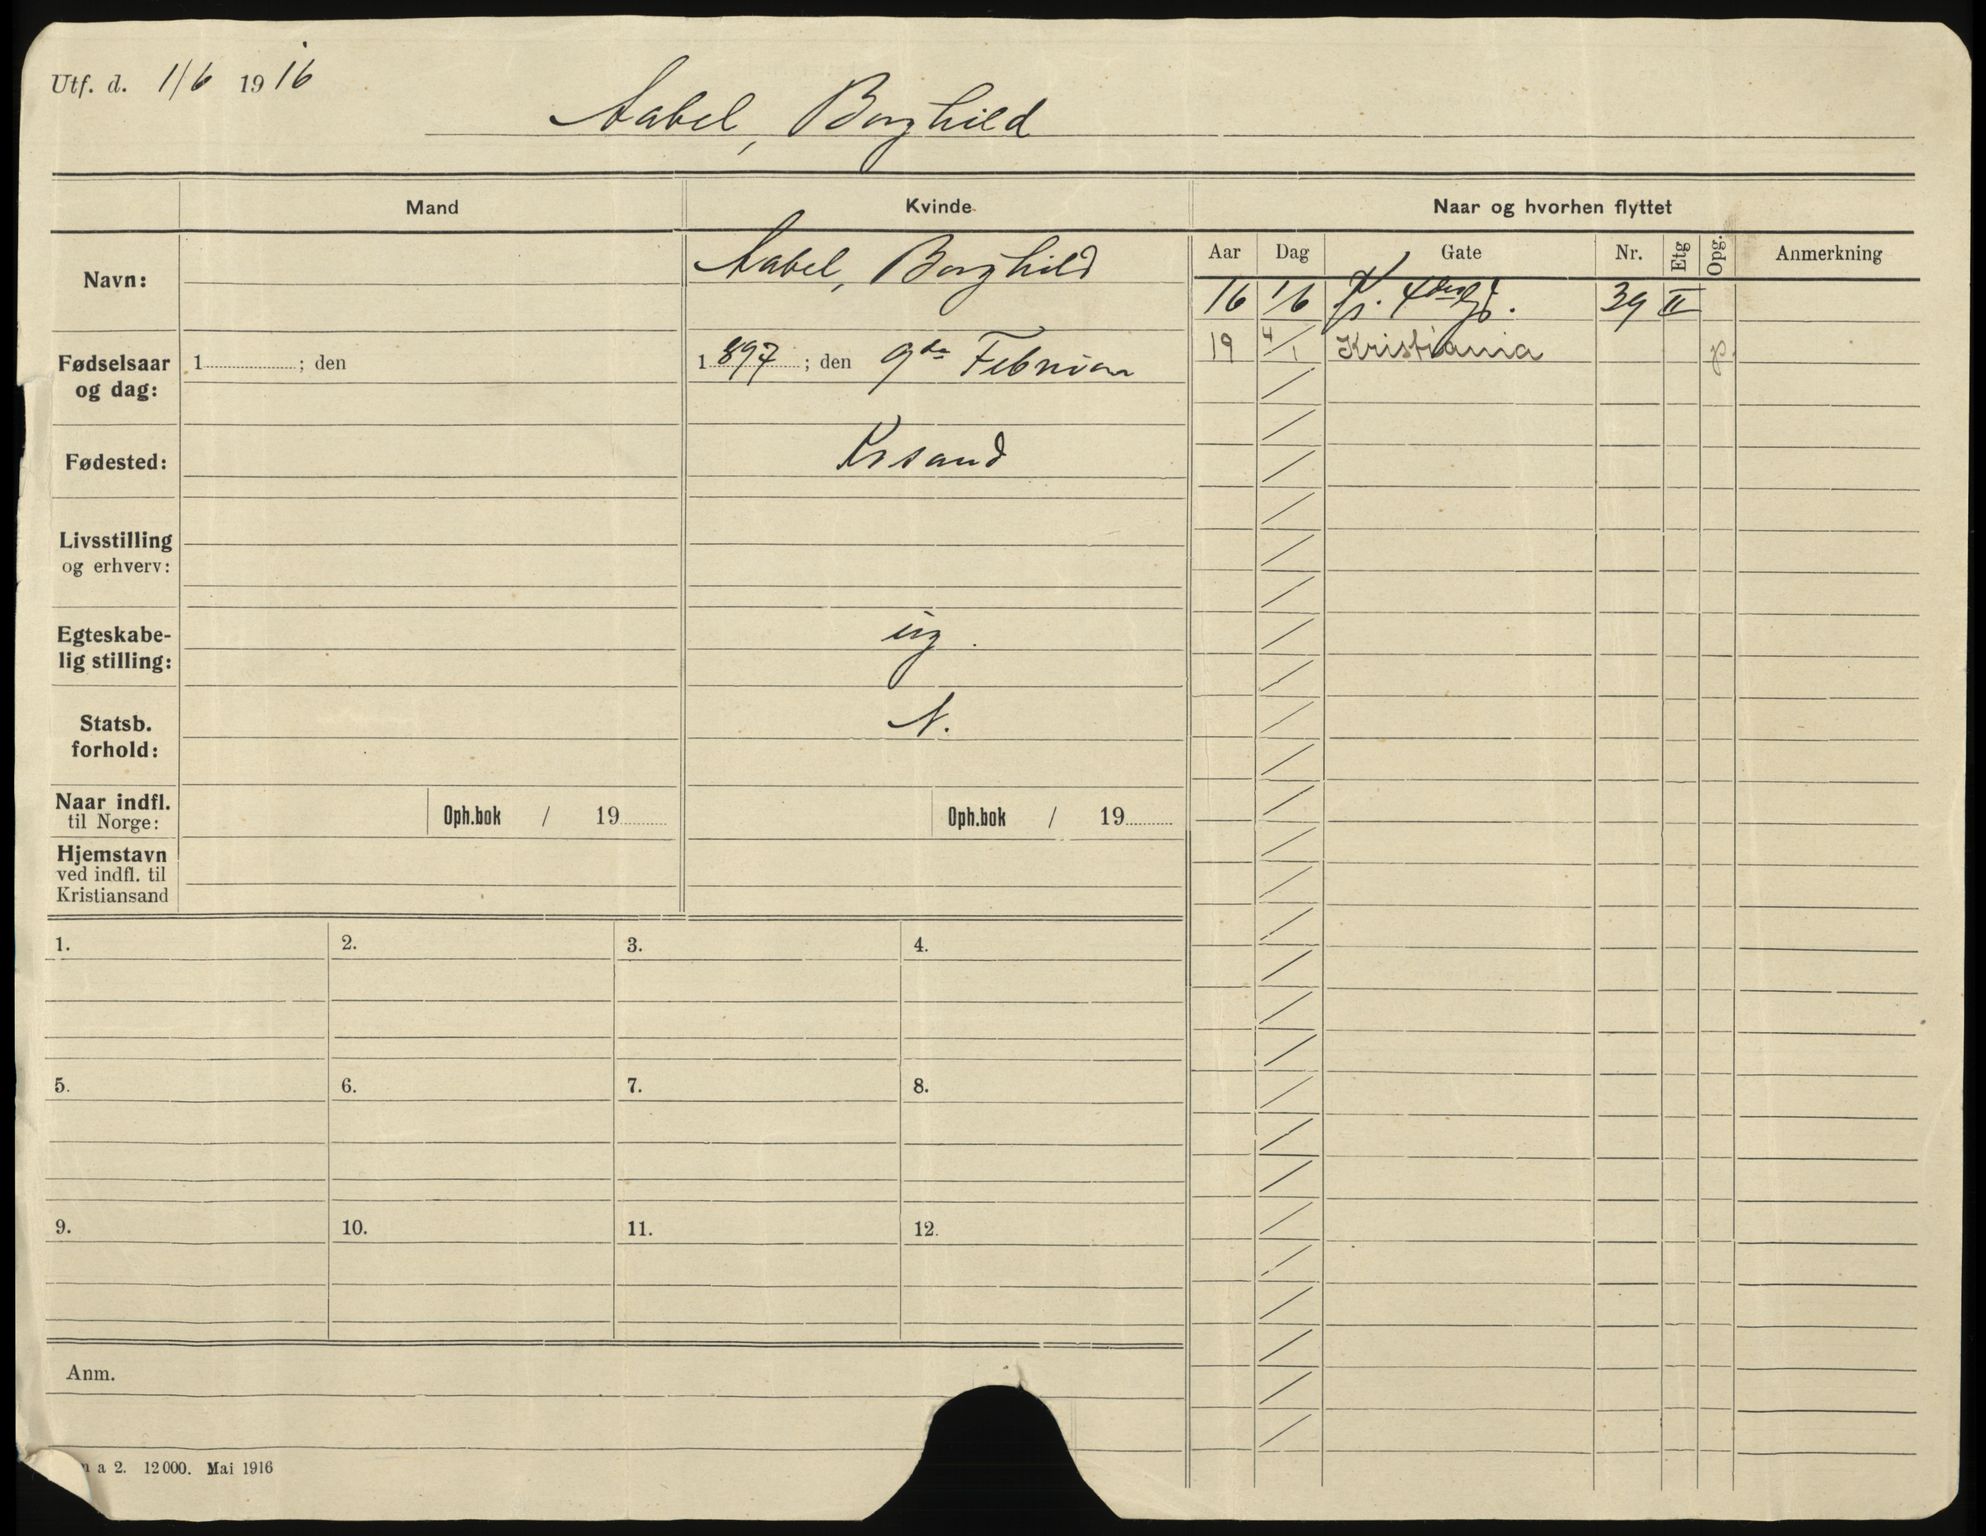 Utf. d. 1/6 1916
Aabel, Borghild
Mand Kvinde Naar og hvorhen flyttet
Aar Dag Gate Nr. Etg Opg. Anmerkning
Navn: Aabel, Borghild
16 1/6 39 II
19 4/1 Kristiania
Fødselsaar og dag: 1 ; den 1897 ; den 9de Februar
Fødested: Krsand
Livsstilling
og erhverv:
Egteskabe-
lig stilling: ug.
Statsb.
forhold: N.
Naar indfl.
til Norge: Oph.bok / 19 Oph.bok / 19
Hjemstavn
ved indfl. til
Kristiansand
1. 2. 3. 4.
5. 6. 7. 8.
9. 10. 11. 12.
Anm.
a 2. 12000. Mai 1916